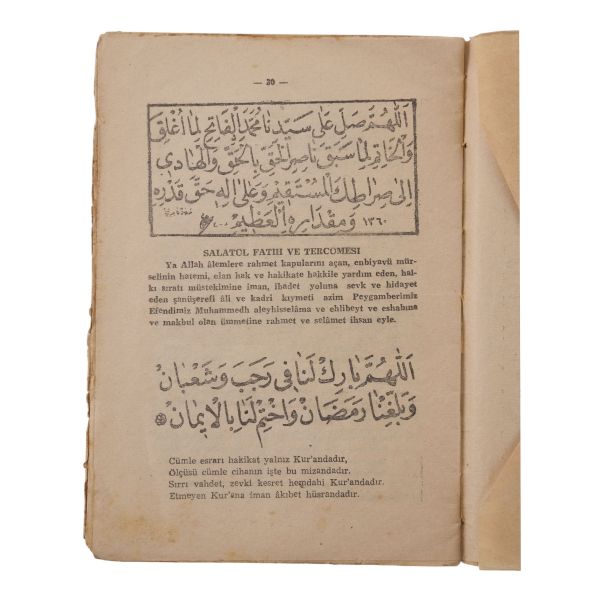 — 30 —
اَللّٰهُمَّ صَلِّ عَلٰى سَيِّدِنَا مُحَمَّدٍ الْفَاتِحِ لِمَا اُغْلِقَ
وَالْخَاتِمِ لِمَا سَبَقَ نَاصِرِ الْحَقِّ بِالْحَقِّ وَالْهَادِى
اِلٰى صِرَاطِكَ الْمُسْتَقِيمِ وَعَلٰى اٰلِهِ حَقَّ قَدْرِهِ
وَمِقْدَارِهِ الْعَظِيمِ ١٣٦٠
SALATÜL FATİH VE TERCÜMESİ
Ya Allah âlemlere rahmet kapularını açan, enbiyavü mür-
selinin hatemi, olan hak ve hakikate hakkile yardım eden, hal-
kı sıratı müstekimine iman, ibadet yoluna sevk ve hidayet
eden şanüşerefi âli ve kadri kıymeti azim Peygamberimiz
Efendimiz Muhammedh aleyhisselâma ve ehlibeyt ve eshabına
ve makbul olan ümmetine rahmet ve selâmet ihsan eyle.
اَللّٰهُمَّ بَارِكْ لَنَا فِى رَجَبَ وَشَعْبَانَ
وَبَلِّغْنَا رَمَضَانَ وَاخْتِمْ لَنَا بِالْاِيمَانِ
Cümle esrarı hakikat yalnız Kur'andadır,
Ölçüsü cümle cihanın işte bu mizandadır.
Sırrı vahdet, zevki kesret hemdahi Kur'andadır.
Etmeyen Kur'ana iman âkıbet hüsrandadır.